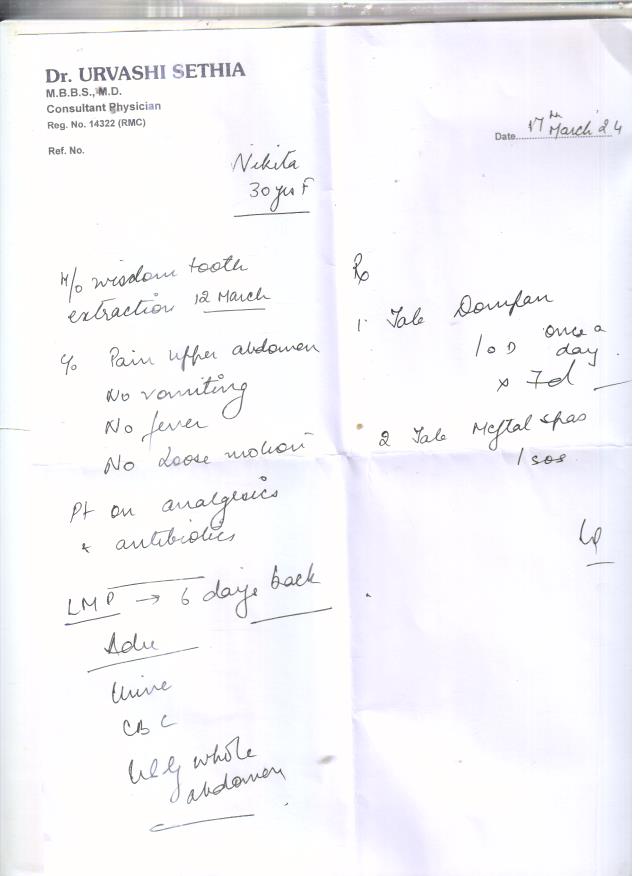 Dr. URVASHI SETHIA
M.B.B.S., M.D.
Consultant Physician
Reg. No. 14322 (RMC)
Ref. No.
Date 17th March'24
Nikita
30 yrs F
H/o wisdom tooth
extraction 12 March
C/o Pain upper abdomen
No vomiting
No fever
No Loose motion
Pt on analgesics
& antibiotics
LMP → 6 days back
Adv
Urine
CBC
USG whole
abdomen
Rx
1. Tab Dompan
1 OD once a
day
x 7d
2 Tab Meftal spas
1 sos